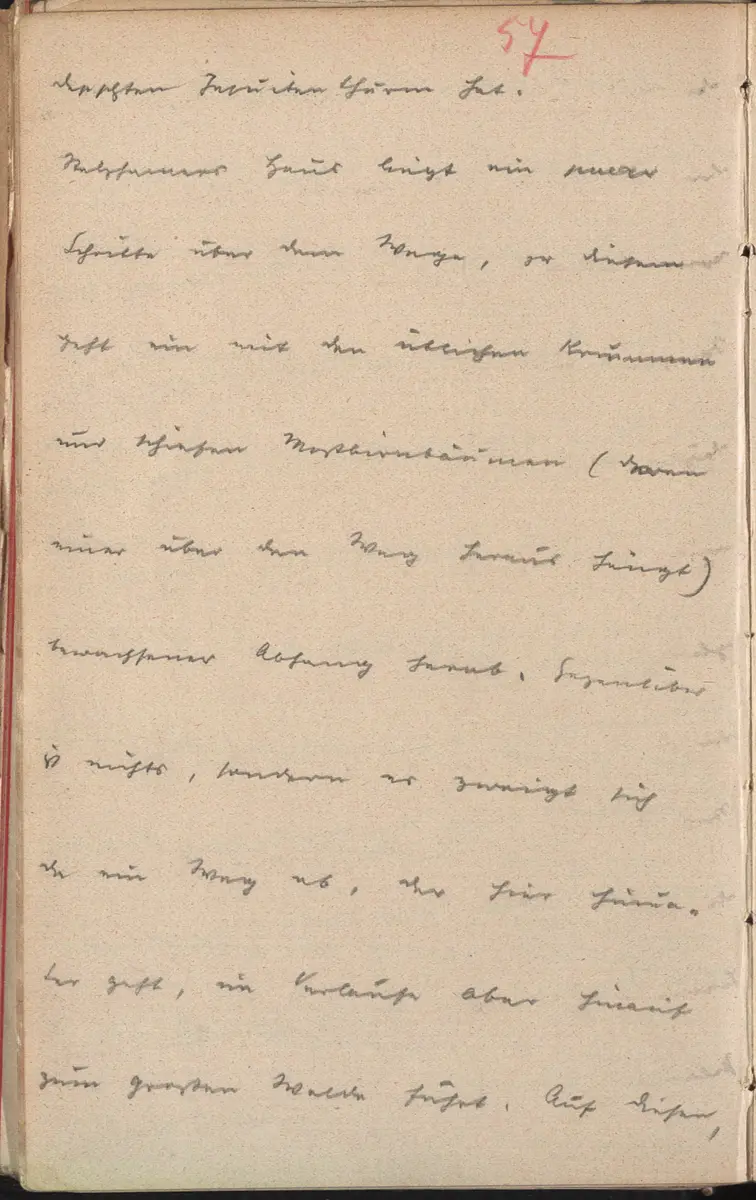 57
deckten Jesuitenthurm hat.
Stelzhamers Haus liegt ein paar
Schritte über dem Wege, zu diesem
geht ein mit den üblichen krummen
und schiefen Mostbirnbäumen (deren
einer über den Weg heraus hängt)
bewachsener Abhang herab. Gegenüber
is nichts, sondern es zweigt sich
da ein Weg ab, der hier hinun-
ter geht, im Verlaufe aber hinauf
zum großen Walde führt. Auf diesen,